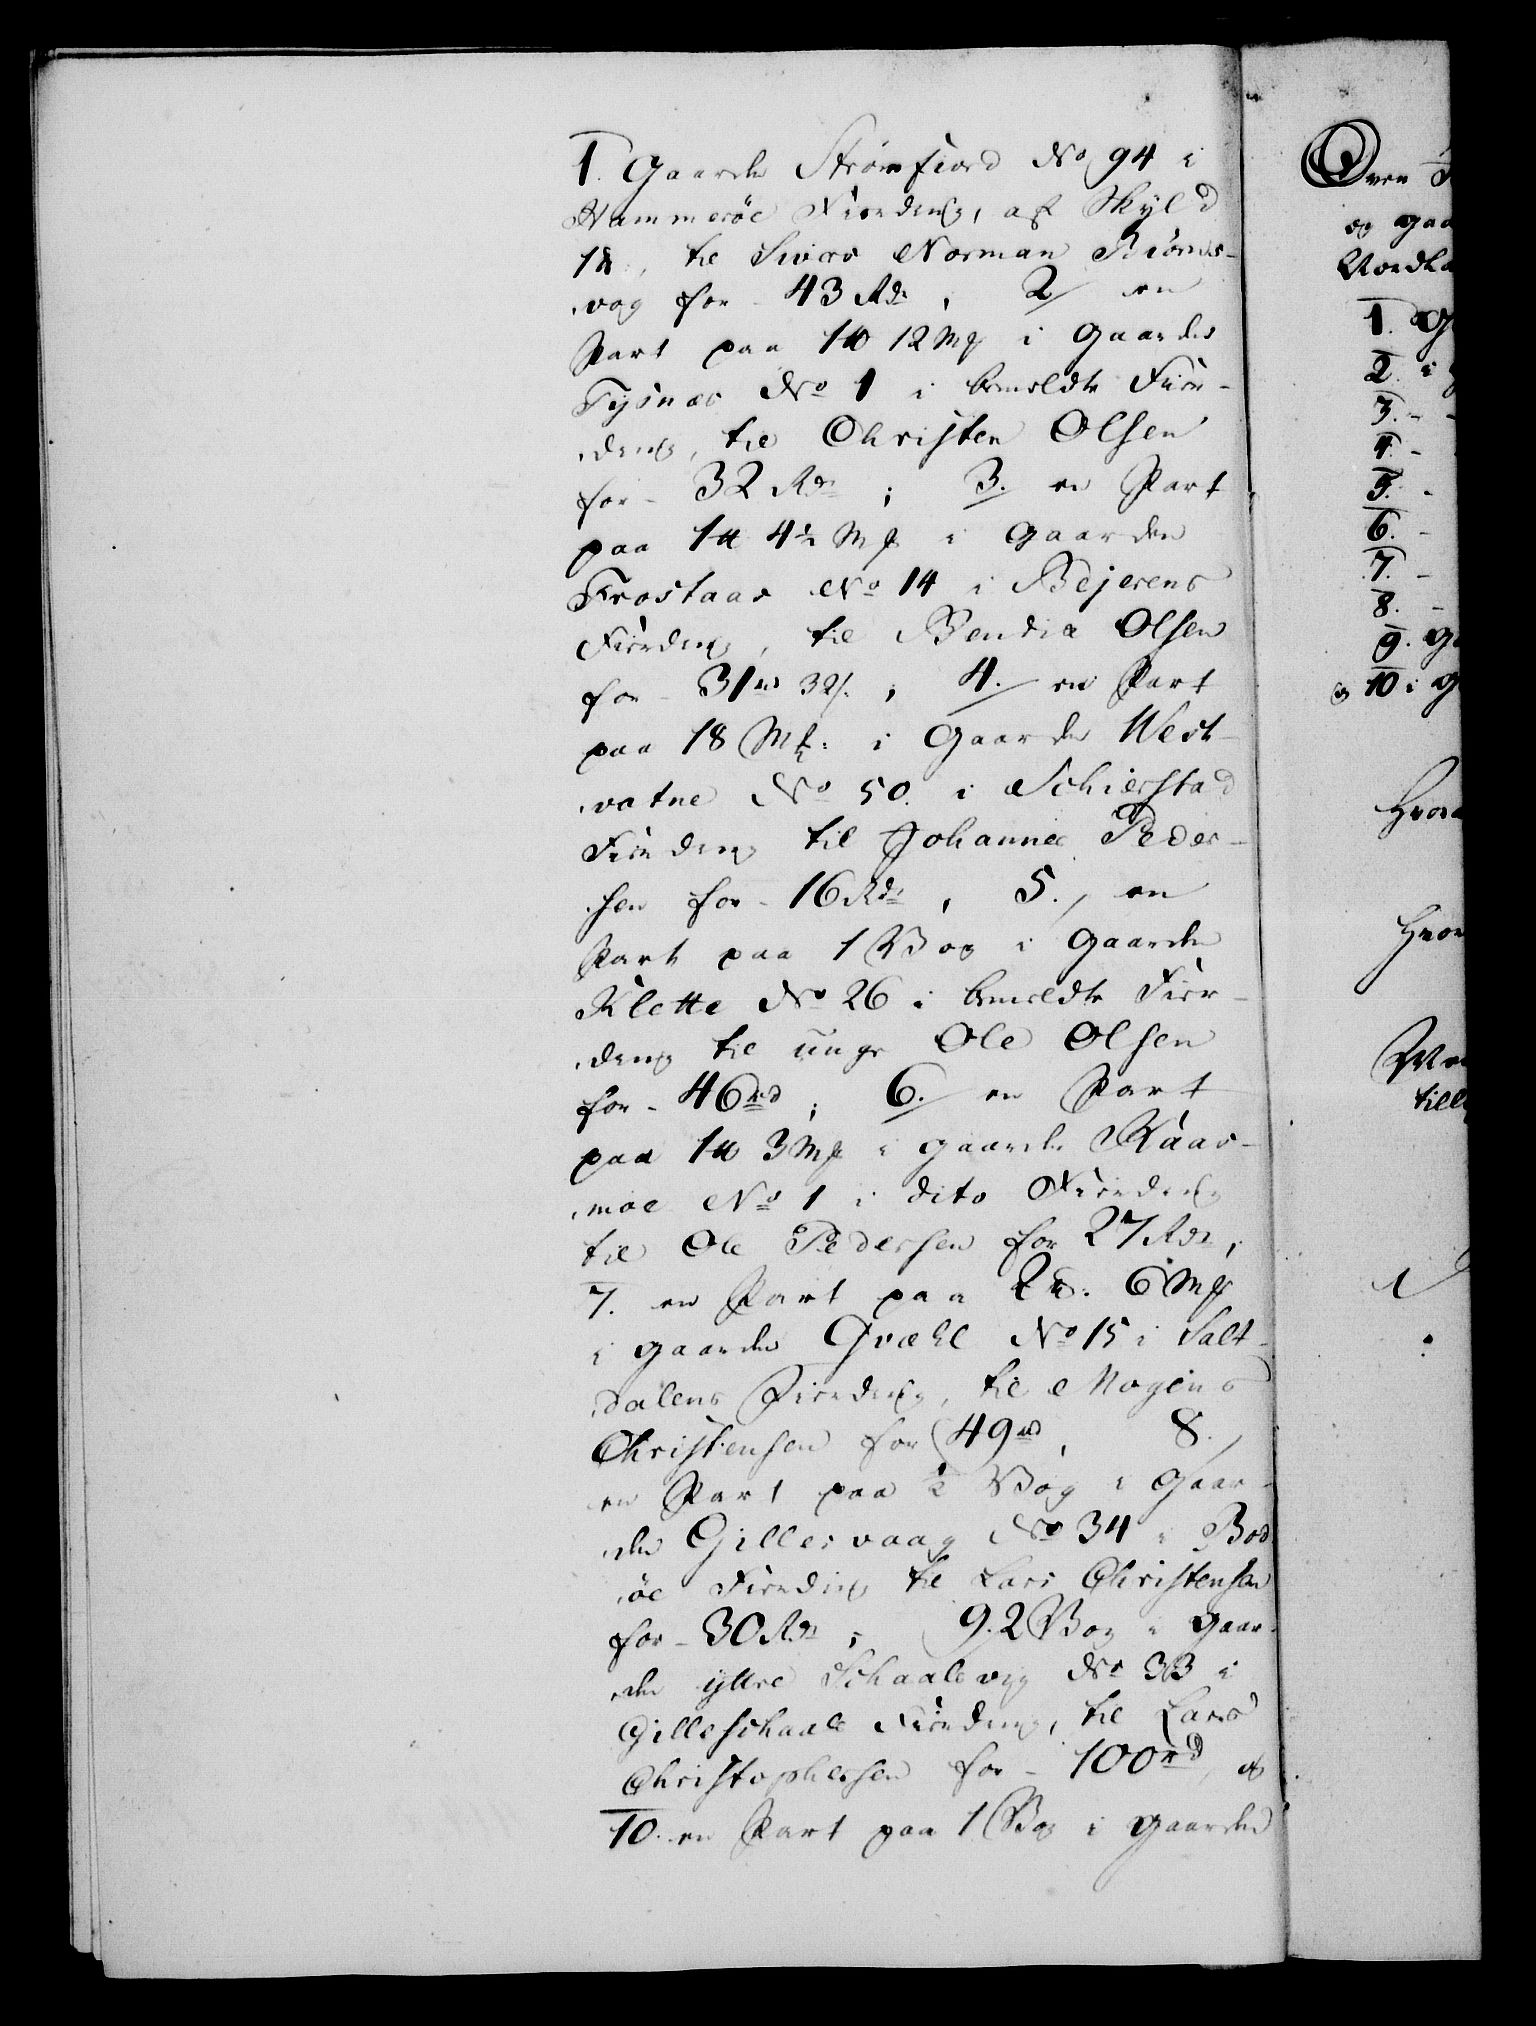 1. Gaarden Strømfiord No 94 i
Hammerøe Fierding, af Skyld
1 ℔, til Sivers Norman Biørns-
vog for - 43 Rdr, 2/ en
Part paa 1 ℔ 12 Mk i Gaarden
Tysnæs No 1 i bemeldte Fier-
ding, til Christen Olsen
for - 32 Rdr; 3. en Part
paa 1 ℔ 4½ Mk i Gaarden
Frostaas No 14 i Bejerens
Fierding, til Bendix Olsen
for - 31 rd 32 s. ; 4. en Part
paa 18 Mk: i Gaarden West-
vatne No 50. i Schierstad
Fierding til Johannes Peder-
sen for - 16 Rdr, 5., en
Part paa 1 Vog i Gaarden
Klette No 26 i bemeldte Fier-
ding til unge Ole Olsen
for - 46 rd; 6. en Part
paa 1 ℔ 3 Mk i Gaarden Kaas-
moe No 1 i dito Fierding
til Ole Pedersen for 27 Rdr,
7. en Part paa 2 ℔: 6 Mk
i Gaarden Qvæhl No 15 i Salt-
dalens Fierding, til Mogens
Christensen for 49 rd, 8.,
en Part paa ½ Vog i Gaar-
den Gillesvaag No 34 i Bod-
øe Fierding til Lars Christensen
for - 30 Rdr; 9. 2 Vog i Gaar-
den ytre Schaalsvig No 33 i
Gilleschaals Fierding, til Lars
Christophersen for - 100 rd, og
10. en Part paa 1 Vog i Gaarden
Oven
og gaa
Nordla
1. G
2. i
3. -
4. -
5. -
6. -
7. -
8. -
9. Ga
og 10 i G
Hvor
till